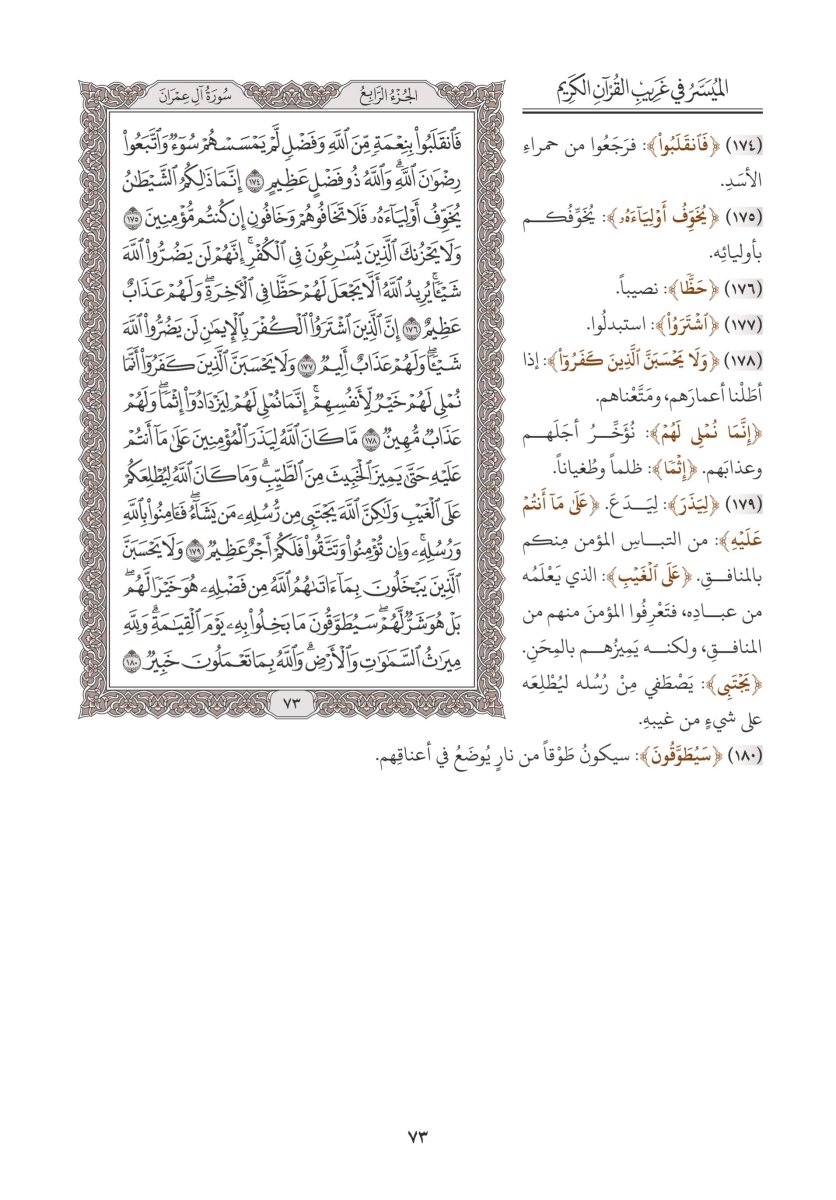 الميُسَّرُ في غَرِيبِ القُرْآنِ الكَرِيم
(١٧٤) ﴿فَٱنقَلَبُواْ﴾: فرَجَعُوا من حمراءِ
الأسَدِ.
(١٧٥) ﴿يُخَوِّفُ أَوْلِيَآءَهُۥ﴾: يُخَوِّفُكم
بأوليائِه.
(١٧٦) ﴿حَظّٗا﴾: نصيباً.
(١٧٧) ﴿ٱشْتَرَوُاْ﴾: استبدلُوا.
(١٧٨) ﴿وَلَا يَحْسَبَنَّ ٱلَّذِينَ كَفَرُوٓاْ﴾: إذا
أطَلْنا أعمارَهم، ومَتَّعْناهم.
﴿إِنَّمَا نُمْلِي لَهُمْ﴾: نُؤَخِّرُ أجلَهم
وعذابَهم. ﴿إِثْمٗا﴾: ظلماً وطُغياناً.
(١٧٩) ﴿لِيَذَرَ﴾: لِيَدَعَ. ﴿عَلَىٰ مَآ أَنتُمْ
عَلَيْهِ﴾: من التباسِ المؤمن مِنكم
بالمنافقِ. ﴿عَلَى ٱلْغَيْبِ﴾: الذي يَعْلَمُه
من عبادِه، فتَعْرِفُوا المؤمنَ منهم من
المنافقِ، ولكنه يَمِيزُهم بالمِحَنِ.
﴿يَجْتَبِي﴾: يَصْطَفي مِنْ رُسُله ليُطْلِعَه
على شيءٍ من غيبهِ.
(١٨٠) ﴿سَيُطَوَّقُونَ﴾: سيكونُ طَوْقاً من نارٍ يُوضَعُ في أعناقِهم.
الجُزْءُ الرَّابِعُ
سُورَةُ آلِ عِمْرَانَ
فَٱنقَلَبُواْ بِنِعْمَةٖ مِّنَ ٱللَّهِ وَفَضْلٖ لَّمْ يَمْسَسْهُمْ سُوٓءٞ وَٱتَّبَعُواْ
رِضْوَٰنَ ٱللَّهِۗ وَٱللَّهُ ذُو فَضْلٍ عَظِيمٍ ١٧٤ إِنَّمَا ذَٰلِكُمُ ٱلشَّيْطَٰنُ
يُخَوِّفُ أَوْلِيَآءَهُۥ فَلَا تَخَافُوهُمْ وَخَافُونِ إِن كُنتُم مُّؤْمِنِينَ ١٧٥
وَلَا يَحْزُنكَ ٱلَّذِينَ يُسَٰرِعُونَ فِي ٱلْكُفْرِۚ إِنَّهُمْ لَن يَضُرُّواْ ٱللَّهَ
شَيْـٔٗاۚ يُرِيدُ ٱللَّهُ أَلَّا يَجْعَلَ لَهُمْ حَظّٗا فِي ٱلْأٓخِرَةِۖ وَلَهُمْ عَذَابٌ
عَظِيمٌ ١٧٦ إِنَّ ٱلَّذِينَ ٱشْتَرَوُاْ ٱلْكُفْرَ بِٱلْإِيمَٰنِ لَن يَضُرُّواْ ٱللَّهَ
شَيْـٔٗاۖ وَلَهُمْ عَذَابٌ أَلِيمٞ ١٧٧ وَلَا يَحْسَبَنَّ ٱلَّذِينَ كَفَرُوٓاْ أَنَّمَا
نُمْلِي لَهُمْ خَيْرٞ لِّأَنفُسِهِمْۚ إِنَّمَا نُمْلِي لَهُمْ لِيَزْدَادُوٓاْ إِثْمٗاۖ وَلَهُمْ
عَذَابٞ مُّهِينٞ ١٧٨ مَّا كَانَ ٱللَّهُ لِيَذَرَ ٱلْمُؤْمِنِينَ عَلَىٰ مَآ أَنتُمْ
عَلَيْهِ حَتَّىٰ يَمِيزَ ٱلْخَبِيثَ مِنَ ٱلطَّيِّبِۗ وَمَا كَانَ ٱللَّهُ لِيُطْلِعَكُمْ
عَلَى ٱلْغَيْبِ وَلَٰكِنَّ ٱللَّهَ يَجْتَبِي مِن رُّسُلِهِۦ مَن يَشَآءُۖ فَـَٔامِنُواْ بِٱللَّهِ
وَرُسُلِهِۦۚ وَإِن تُؤْمِنُواْ وَتَتَّقُواْ فَلَكُمْ أَجْرٌ عَظِيمٞ ١٧٩ وَلَا يَحْسَبَنَّ
ٱلَّذِينَ يَبْخَلُونَ بِمَآ ءَاتَىٰهُمُ ٱللَّهُ مِن فَضْلِهِۦ هُوَ خَيْرٗا لَّهُمۖ
بَلْ هُوَ شَرّٞ لَّهُمْۖ سَيُطَوَّقُونَ مَا بَخِلُواْ بِهِۦ يَوْمَ ٱلْقِيَٰمَةِۗ وَلِلَّهِ
مِيرَٰثُ ٱلسَّمَٰوَٰتِ وَٱلْأَرْضِۗ وَٱللَّهُ بِمَا تَعْمَلُونَ خَبِيرٞ ١٨٠
٧٣
٧٣